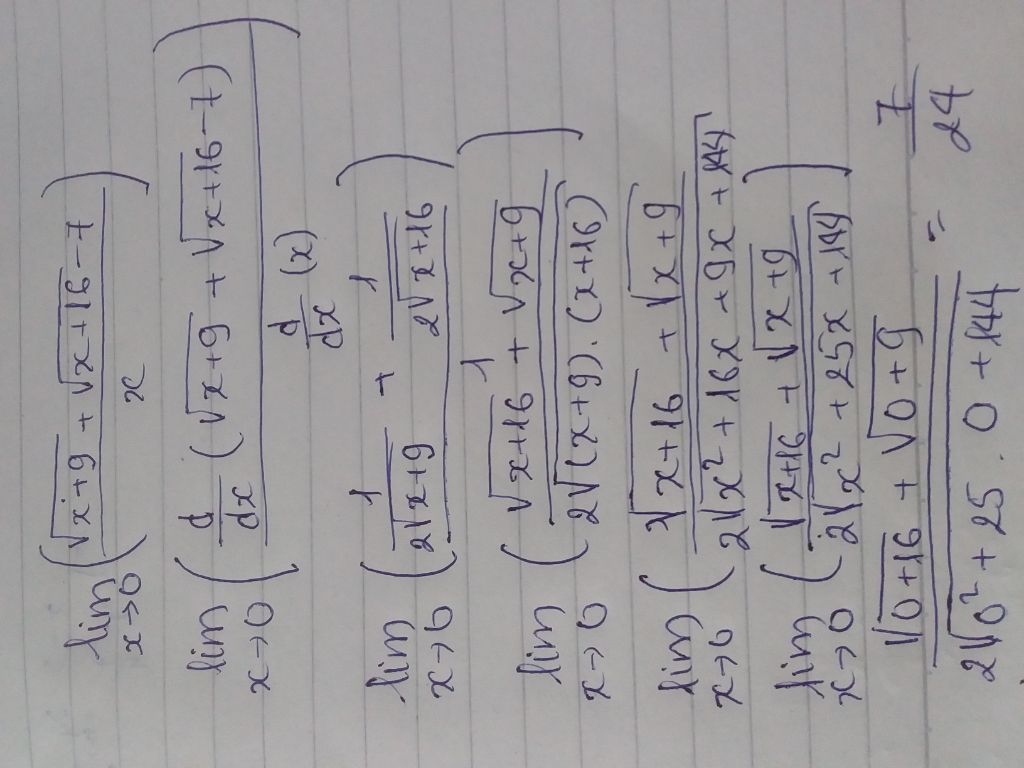 lim x→0 ( (√(x+9) + √(x+16) - 7) / x )
lim x→0 ( d/dx (√(x+9) + √(x+16) - 7) / d/dx (x) )
lim x→0 ( (1/(2√(x+9)) + 1/(2√(x+16))) / 1 )
lim x→0 ( ((√(x+16) + √(x+9)) / (2√((x+9).(x+16)))) / 1 )
lim x→0 ( (√(x+16) + √(x+9)) / (2√(x² + 16x + 9x + 144)) )
lim x→0 ( (√(x+16) + √(x+9)) / (2√(x² + 25x + 144)) )
(√(0+16) + √(0+9)) / (2√(0² + 25.0 + 144)) = 7/24